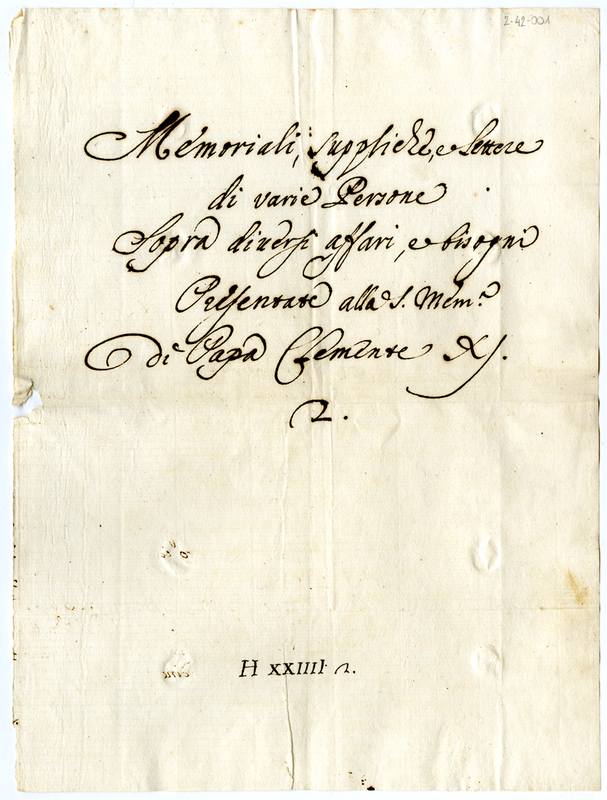 2-42-001
Memoriali, suppliche, e Lettere
di varie Persone
Sopra diversi affari, e bisogni
Presentate alla S. Mem.ª
di Papa Clemente XI.
2.
H XXIIII 2.